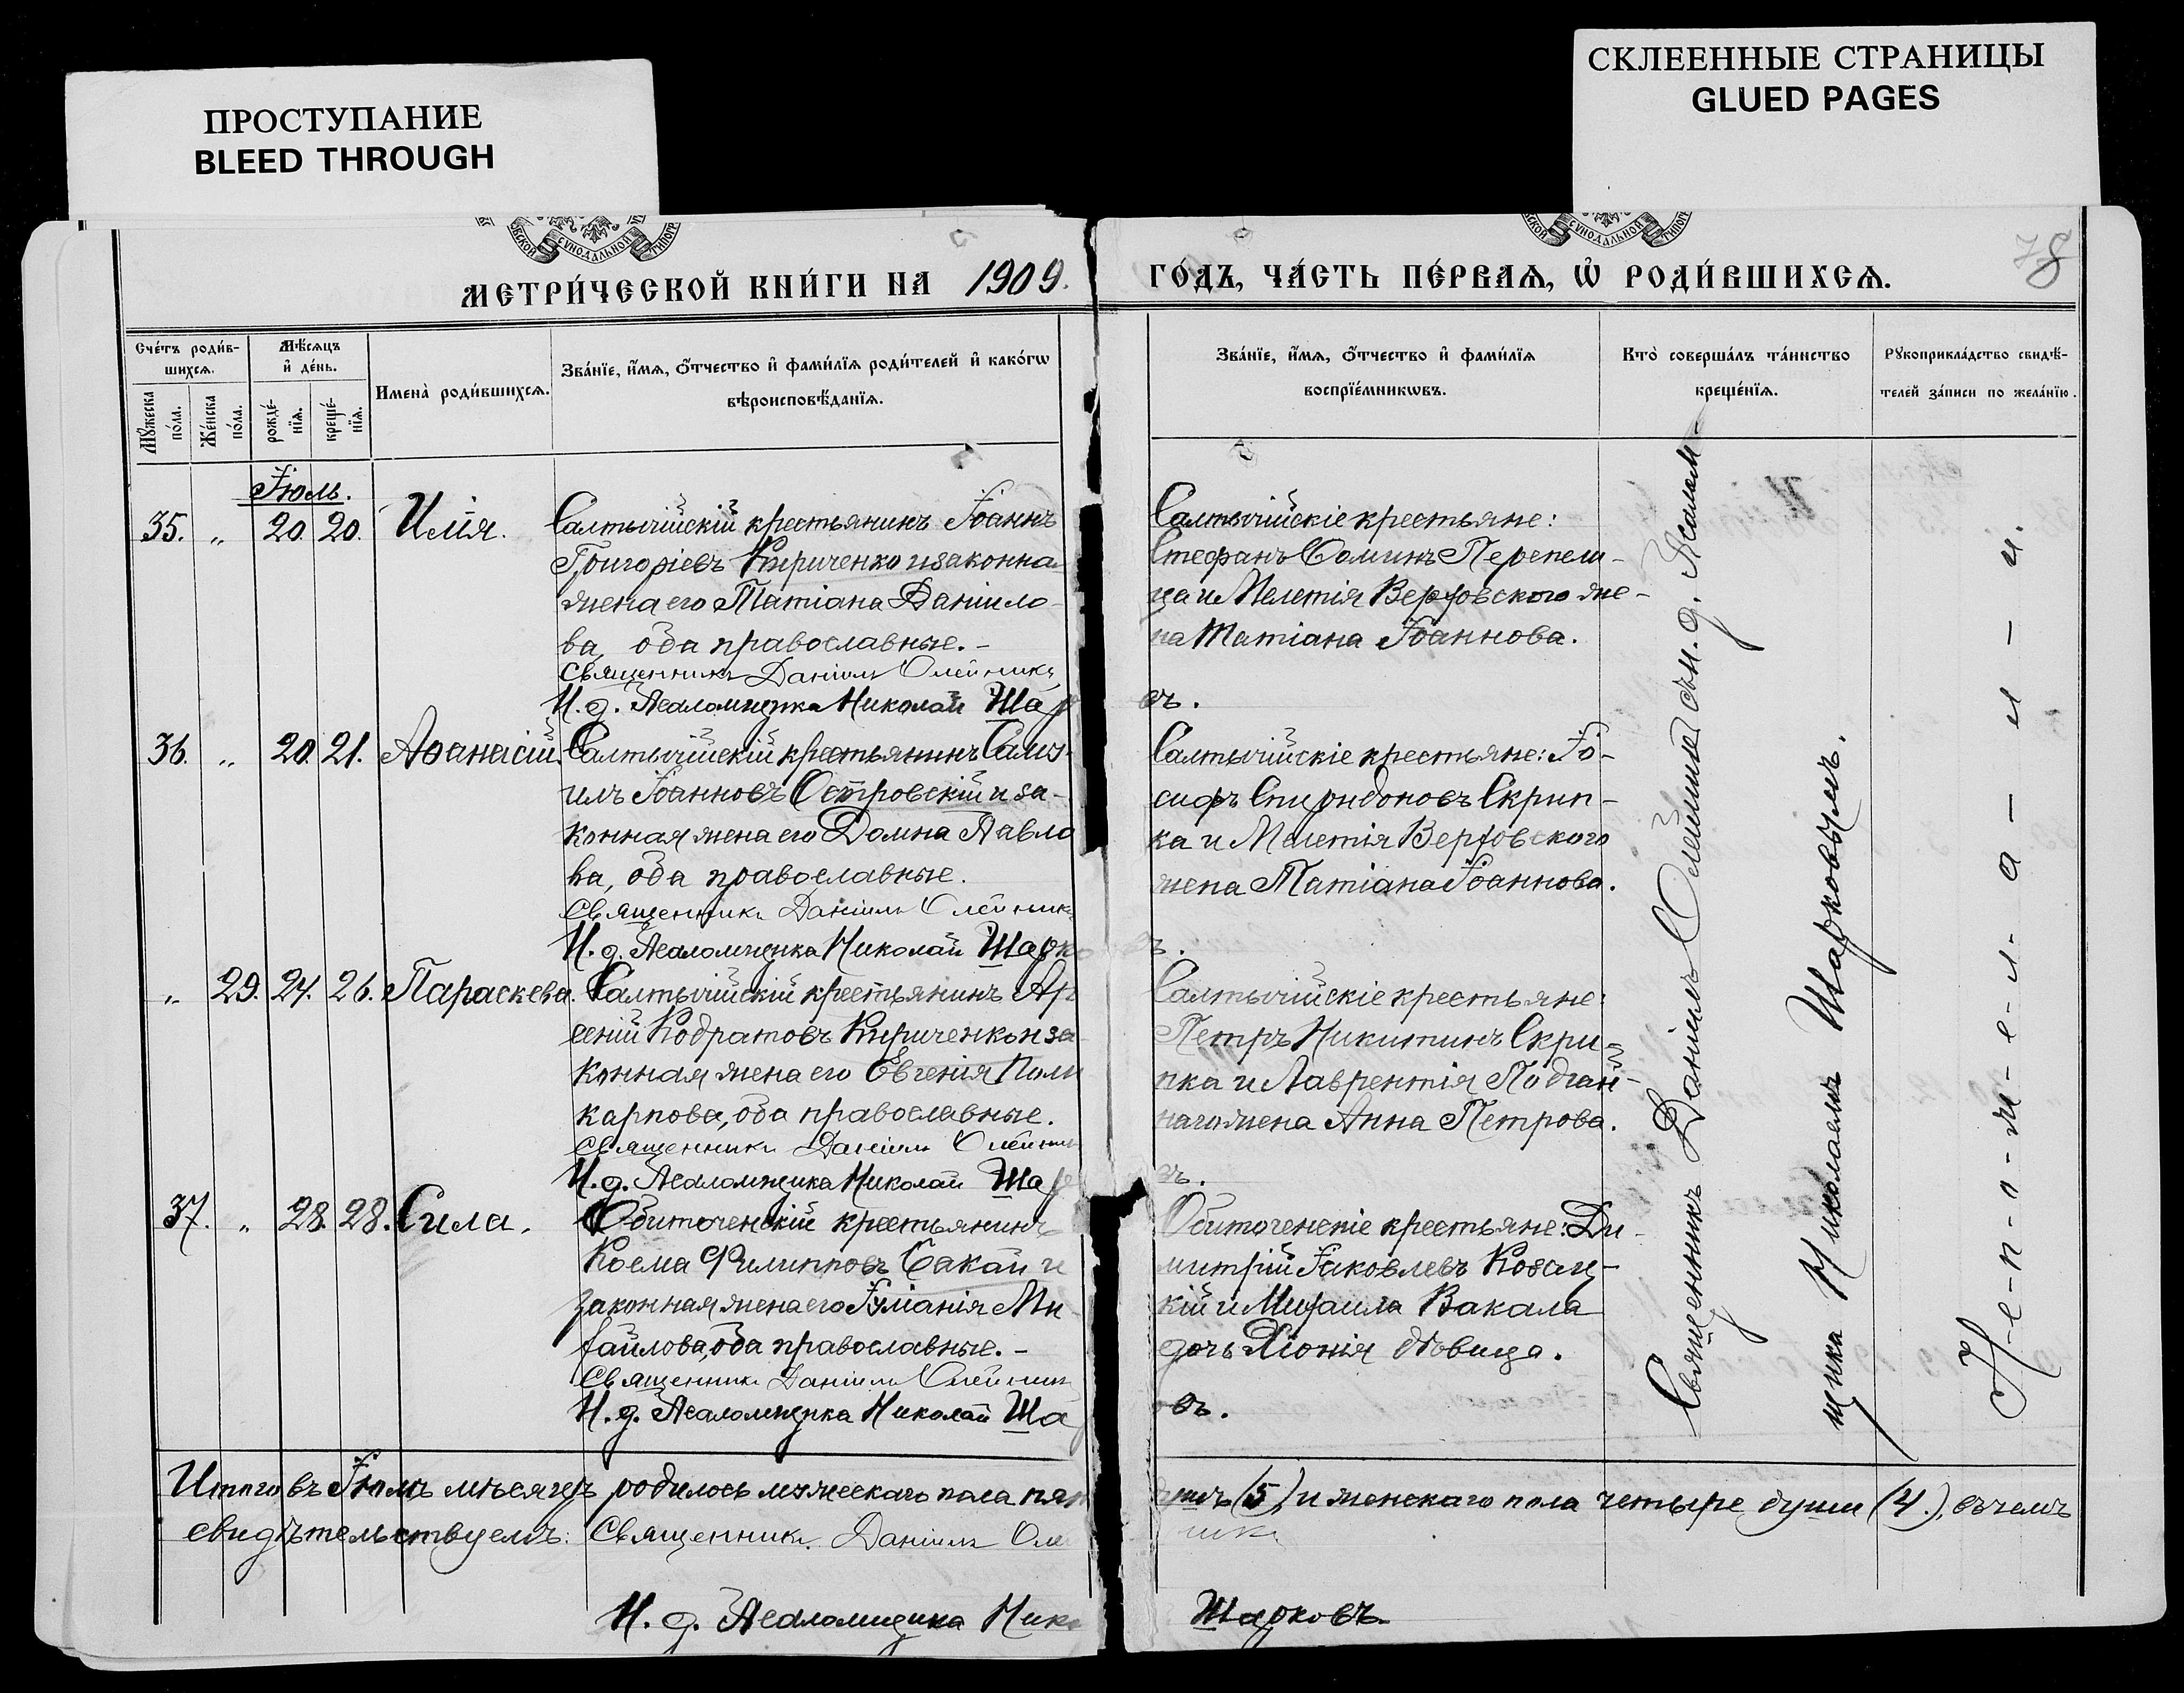 ПРОСТУПАНИЕ
BLEED THROUGH
СКЛЕЕННЫЕ СТРАНИЦЫ
GLUED PAGES
СУНОДАЛЬНОЙ
СУНОДАЛЬНОЙ
78
МЕТРИ́ЧЕСКОЙ КНИ́ГИ НА 1909.
ГО́ДЪ, ЧА́СТЬ ПЕ́РВАѦ, Ѡ҆ РОДИ́ВШИХСѦ.
Сче́тъ роди́в-
шихсѧ.
Мѹ́жеска по́ла.
Же́нска по́ла.
Мѣ́сѧцъ
и҆ де́нь.
рожде́-нїѧ.
креще́-нїѧ.
Имена̀ роди́вшихсѧ.
Зва́нїе, и҆́мѧ, ѻ҆́тчество и҆ фами́лїѧ роди́телей и҆ како́гѡ
вѣроисповѣ́данїѧ.
Зва́нїе, и҆́мѧ, ѻ҆́тчество и҆ фами́лїѧ
воспрїе́мникѡвъ.
Кто̀ соверша́лъ та́инство
креще́нїѧ.
Рѹкоприкла́дство свидѣ́-
телей за́писи по жела́нїю.
Іюль.
35. „ 20. 20. Илія.
Салтычійскій крестьянинъ Іоаннъ
Григоріевъ Кириченко и законная
жена его Татіана Даніило-
ва, оба православные. -
Священникъ Даніилъ Олейникъ
И. д. Псаломщика Николай Шар
Салтычійскіе крестьяне:
Стефанъ Ѳоминъ Перепели-
ца и Мелетія Верховского же-
на Татіана Іоаннова.
въ.
36. „ 20. 21. Аѳанасій.
Салтычійскій крестьянинъ Саму-
илъ Іоанновъ Островскій и за-
конная жена его Домна Павло
ва, оба православные.
Священникъ Даніилъ Олейникъ
И. д. Псаломщика Николай Шарко
Салтычійскіе крестьяне: Іо-
сифъ Спиридоновъ Скрип-
ка и Мелетія Верховского
жена Татіана Іоаннова.
въ.
„ 29. 24. 26. Параскева.
Салтычійскій крестьянинъ Ар
сеній Кодратовъ Кириченко и за
конная жена его Евгенія Поли
карпова, оба православные.
Священникъ Даніилъ Олейник
И. д. Псаломщика Николай Шар
Салтычійскіе крестьяне:
Петръ Никитинъ Скри-
пка и Лаврентія
жена Анна Петрова.
въ.
37. „ 28. 28. Сила.
Обиточенскій крестьянинъ
Косма Филипповъ Сакай и
законная жена его Іуліанія Ми
хайлова, оба православные. -
Священникъ Даніилъ Олейник
И. д. Псаломщика Николай Шар
Обиточенскіе крестьяне: Ди-
митрій Іаковлевъ Козац-
кій и Михаила Вакала
дочь Хіонія дѣвица.
овъ.
Священникъ Даніилъ Олейникъ съ и. д. Псалом-
щика Николаемъ Шарковымъ.
Н-е-п-о-ж-е-л-а-л-и.
Итого въ Іюлѣ мѣсяцѣ родилось мужескаго пола пят
душъ (5) и женскаго пола четыре души (4.), въ чемъ
свидѣтельствуемъ: Священникъ Даніилъ Оле
никъ
И. д. Псаломщика Нико
Шарковъ.